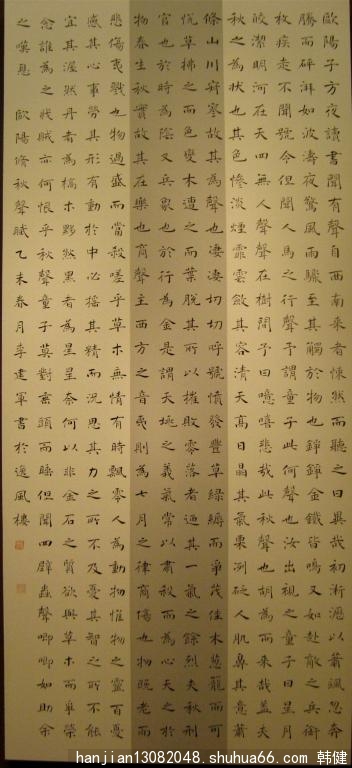 歐陽子方夜讀書聞有聲自西南來者悚然而聽之曰異哉初淅瀝以蕭颯忽奔
騰而砰湃如波濤夜驚風雨驟至其觸於物也錚錚金鐵皆鳴又如赴敵之兵銜
枚疾走不聞號令但聞人馬之行聲予謂童子此何聲也汝出視之童子曰星月
皎潔明河在天四無人聲聲在樹間予曰噫嘻悲哉此秋聲也胡為而來哉蓋夫
秋之為狀也其色慘淡煙霏雲斂其容清天高日晶其氣栗冽砭人肌骨其意蕭
條山川寂寥故其為聲也淒淒切切呼號憤發豐草綠縟而爭茂佳木蔥籠而可
悅草拂之而色變木遭之而葉脫其所以摧敗零落者其一氣之餘烈夫秋刑
官也於時為陰又兵象也於行為金是謂天地之義氣常以肅殺而為心天之於
物春生秋實故其在樂也商聲主西方之音夷則為七月之律商傷也物既老而
悲傷夷戮也物過盛而當殺嗟乎草木無情有時飄零人為動物惟物之靈百憂
感其心事勞其形有動於中必搖其精而況思其力之所不及憂其智之所不能
宜其渥然丹者為槁木黟然黑者為星星奈何以非金石之質欲與草木而爭榮
念誰為之戕賊亦何恨乎秋聲童子莫對垂頭而睡但聞四壁蟲聲唧唧如助余
之嘆息 歐陽修秋聲賦乙未春月李建軍書於逸風樓
hanjian13082048.shuhua66.com 韩健